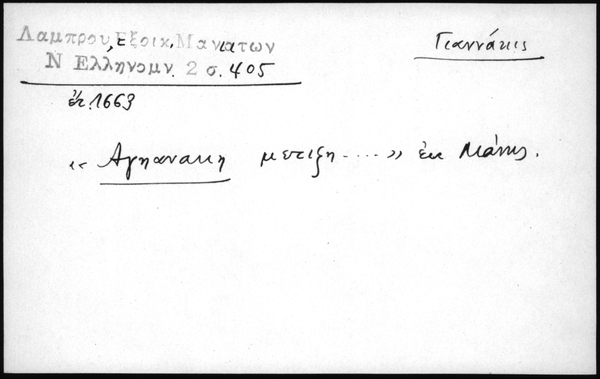 Λαμπρου, Εξοικ. Μανιατων
Ν Ελληνομν. 2 σ. 405
Γιαννάκις
ἔτ. 1663
«Αγηανακη μπιζη....» ἐκ Μάνης.